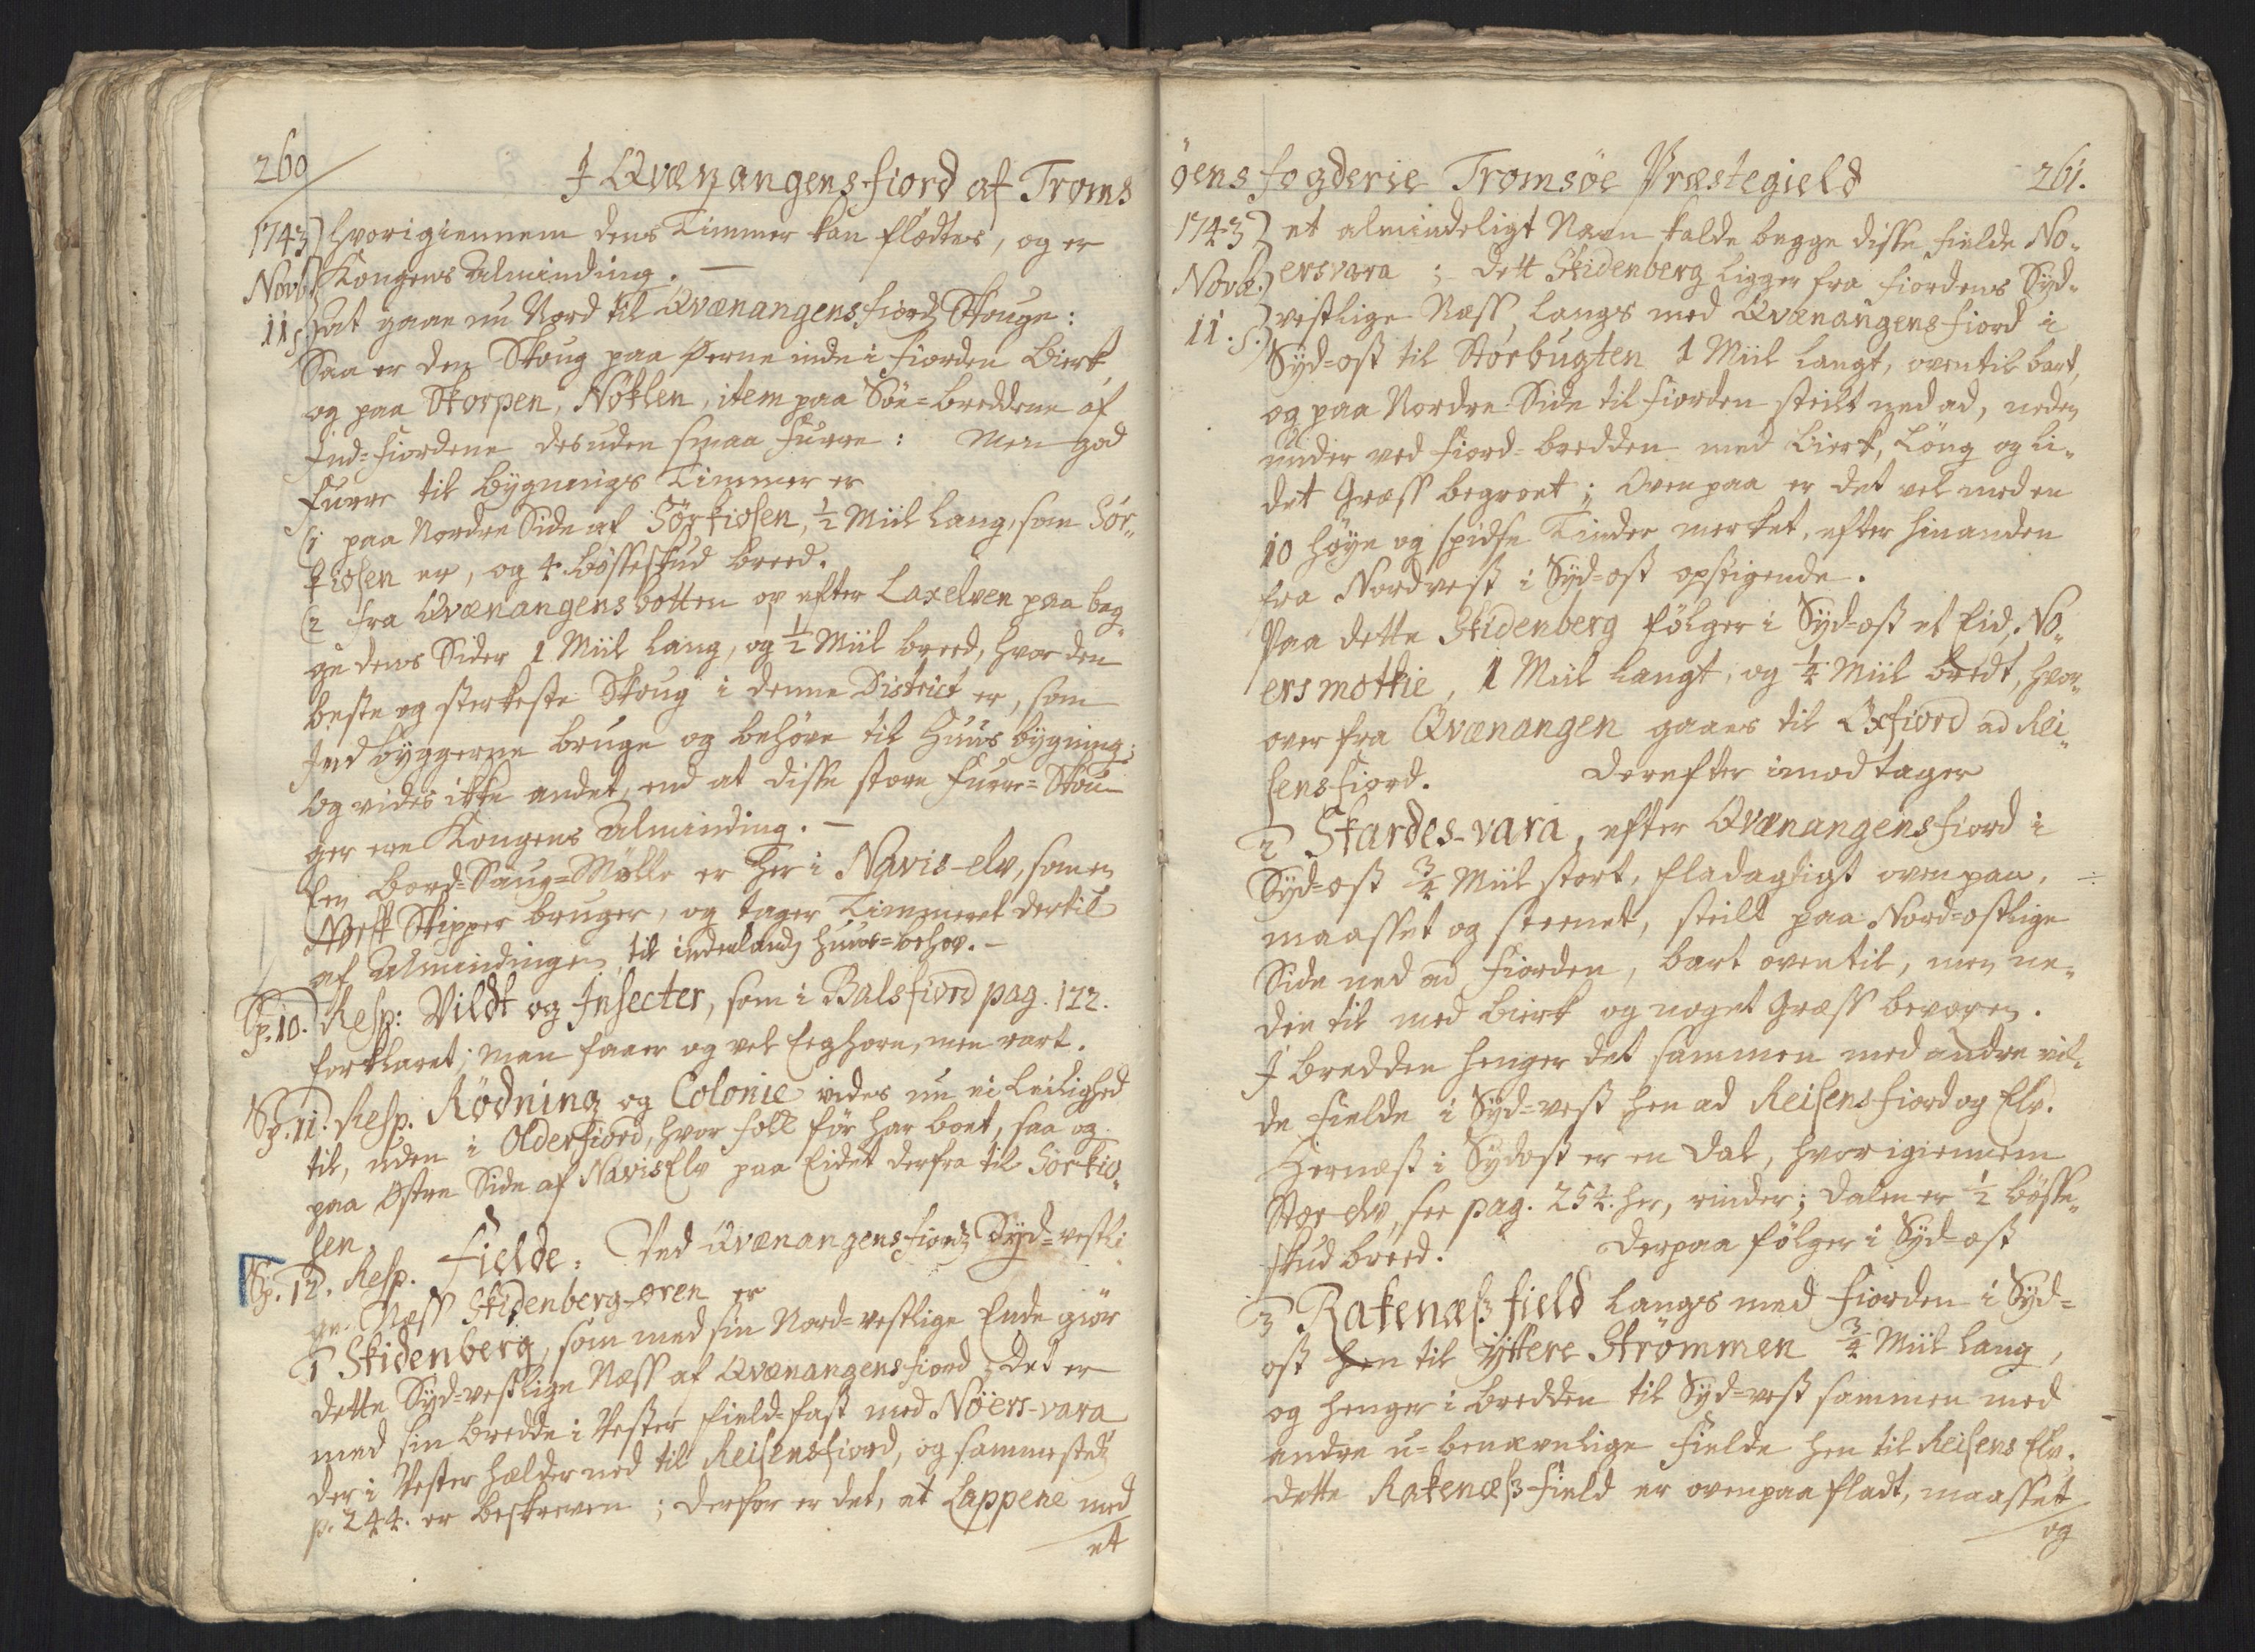 260
I Qvænangens fiord af Troms
1743 hvorigiennem dens Timmer kan flødtes, og er
Novb. Kongens Alminding. —
11 s. At gaae nu Nord til Qvænangensfiords Skouge:
Saa er den Skoug paa Øerne inde i fiorden Birk,
og paa Skorpen, Nöklen, item paa Söe-breddene af
Ind-fiordene desuden smaa furre: Men god
furre til bygnings Timmer er
(1 paa Nordre Side af Sörkiosen, ½ Miil lang, som Sör-
kiosen er, og 4 bösseskud breed.
(2 fra Qvænangensbotten op efter Laxelven paa beg-
ge dens Sider 1 Miil lang, og ½ Miil breed, hvor den
beste og sterkeste Skoug i denne District er, som
Indbyggerne bruge og behøve til Huus bygning;
Og vides ikke andet, end at disse store furre-Skou-
ger ere Kongens Alminding. —
En bord-Saug-Mölle er her i Navis-elv, som en
Skipper bruger, og tager Timmeret dertil
af Almindingen til indenlands huus-behov. —
Sp. 10. Resp: Vildt og Insecter, som i Balsfiord pag. 122.
forklaret; man faaer og vel Eeghorn, men rart.
Sp. 11. Resp. Rödning og Colonie vides nu ei Leilighed
til, uden i Olderfiord, hvor folk för har boet, saa og
paa Østre Side af Navis Elv paa Eidet derfra til Sörkio-
sen.
Sp. 12. Resp. Fielde: Ved Qvænangensfiords Syd-vestli-
ge Næss Skidenberg-oren er
1 Skidenberg, som med sin Nord-vestlige Ende giör
dette Syd-vestlige Næss af Qvænangensfiord; Det er
med sin bredde i Vester field-fast med Nöers-vara
der i Vester hælder ned til Reisensfiord, og sammesteds
p. 244. er beskreven; derfor er det, at Lappene med
et
öens fogderie Tromsöe Præstegield
261.
1743 et almindeligt Navn kalde begge disse fielde No-
Novb. ersvara; dett Skidenberg ligger fra fiordens Syd-
11. s. vestlige Næss langs med Qvænangensfiord i
Syd-ost til Storbugten 1 Miil langt, oventil bart,
og paa Nordre Side til fiorden steilt ned ad, neden
under ved fiord-bredden med birk, Löng og li-
det Græss begroet; Oven paa er det vel med en
10 höye og spidse Tinder merket, efter hinanden
fra Nordvest i Syd-ost opstigende.
Paa dette Skidenberg fölger i Syd-ost et Eid, No-
ersmotkie, 1 Miil langt, og ¼ Miil bredt, hvor-
over fra Qvænangen gaaes til Oxfiord ad Rei-
sensfiord. Derefter imodtager
2 Skardes-vara, efter Qvænangensfiord i
Syd-ost ¾ Miil stort, fladagtigt oven paa,
maasset og steenet, steilt paa Nord-ostlige
Side ned ad fiorden, bart oventil, men ne-
den til med birk og noget Græss bevoxen.
I bredden henger det sammen med andre vil-
de fielde i Syd-vest hen ad Reisensfiord og Elv.
Hernæst i Sydost er en Dal, hvorigiennem
Stor-elv, see pag. 254. her, rinder; Dalen er ½ bösse-
skud breed. Derpaa fölger i Syd-ost
3 Rakenæss field langs med fiorden i Syd-
ost hen til Yttere Strömmen ¾ Miil lang,
og henger i bredden til Syd-vest sammen med
andre u-benævnlige fielde hen til Reisens Elv.
dette Rakenæss-field er ovenpaa fladt, maasset
og